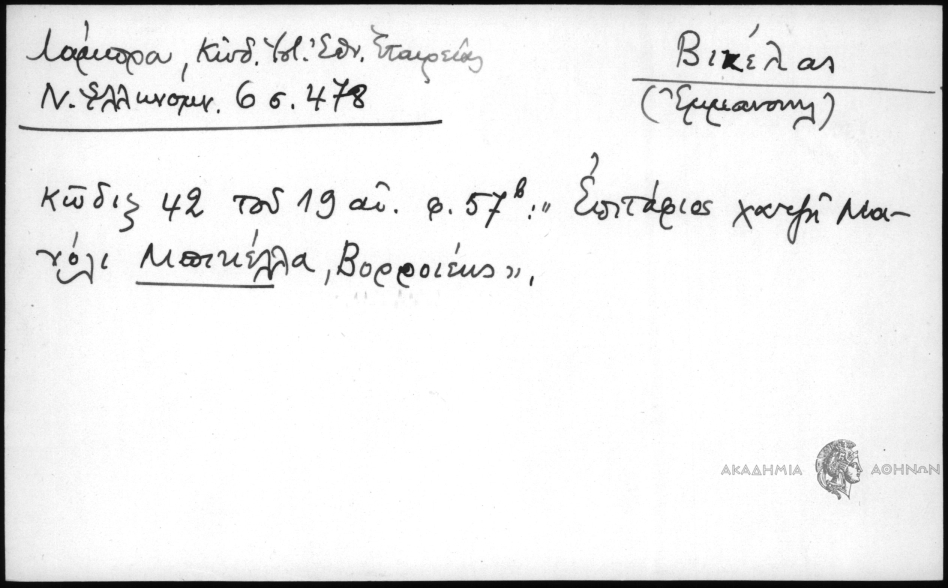 Λάμπρου, Κώδ. Ἱστ. Ἐθν. Ἑταιρείας
Ν. Ἑλληνομν. 6 σ. 478
Βικέλας
(Ἐμμανουὴλ)
κῶδιξ 42 τοῦ 19 αἰ. φ. 57β: "Ἐπιτάφιος Μα-
νόλι Μπικέλλα, Βορροιέως".
ΑΚΑΔΗΜΙΑ ΑΘΗΝΩΝ